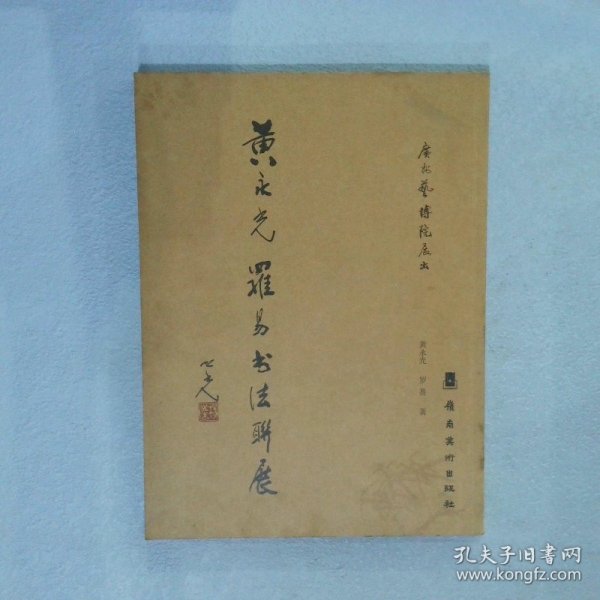 廣州藝博院展出
黄永光 罗易 著
嶺南美術出版社
黄永光羅易书法聯展
孔夫子旧书网
www.kongfz.com